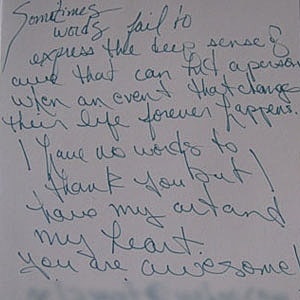 Sometimes
words fail to
express the deep sense of
awe that can hit a person
when an event that changes
their life forever happens.
I have no words to
thank you but I
have my art and
my heart.
you are awesome!